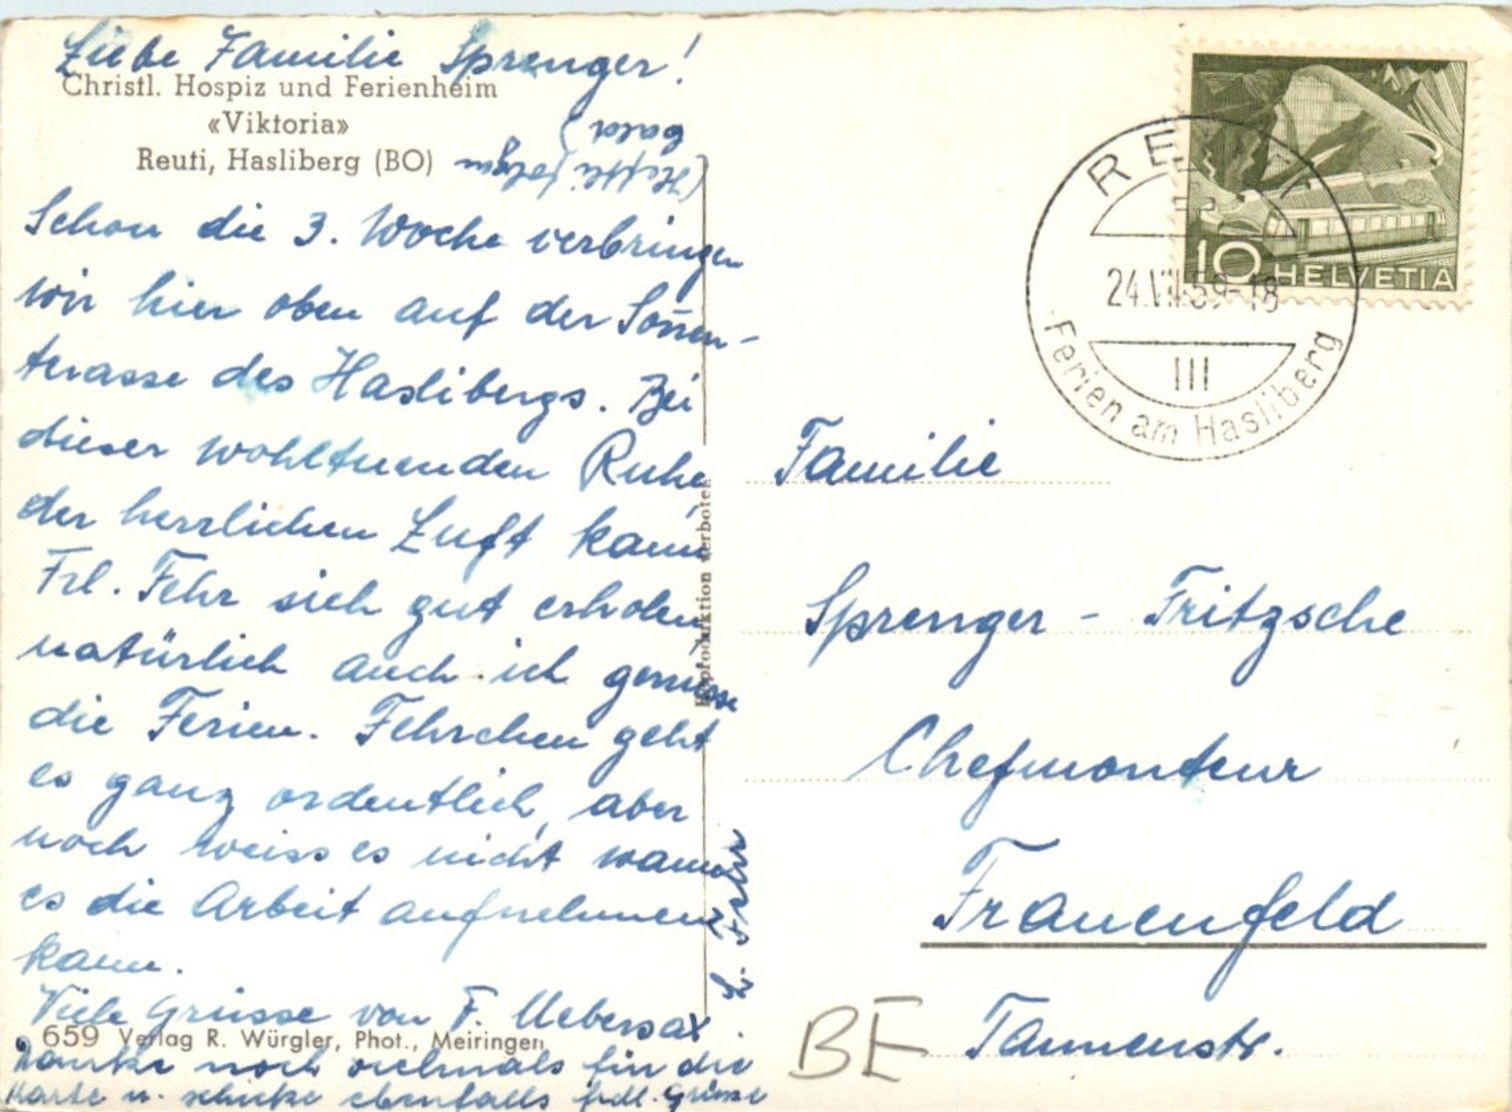 Liebe Familie Sprenger!
Christl. Hospiz und Ferienheim
«Viktoria»
Reuti, Hasliberg (BO)
Schon die 3. Woche verbringen
wir hier oben auf der Sonnen-
terasse des Haslibergs. Bei
dieser wohltuenden Ruhe
der herrlichen Luft kann
Frl. Fehr sich gut erholen
natürlich auch ich geniesse
die Ferien. Fehrchen geht
es ganz ordentlich, aber
noch weiss es nicht wann
es die Arbeit aufnehmen
kann.
Viele Grüsse von F. Uebersax.
659 Verlag R. Würgler, Phot., Meiringen
Danke noch vielmals für die
Karte u. schicke ebenfalls frdl. Grüsse
L. Fehr
Reproduktion verboten
10 HELVETIA
REUTI
24.VII.59-18
III
Ferien am Hasliberg
Familie
Sprenger - Fritzsche
Chefmonteur
Frauenfeld
Tannenstr.
BE